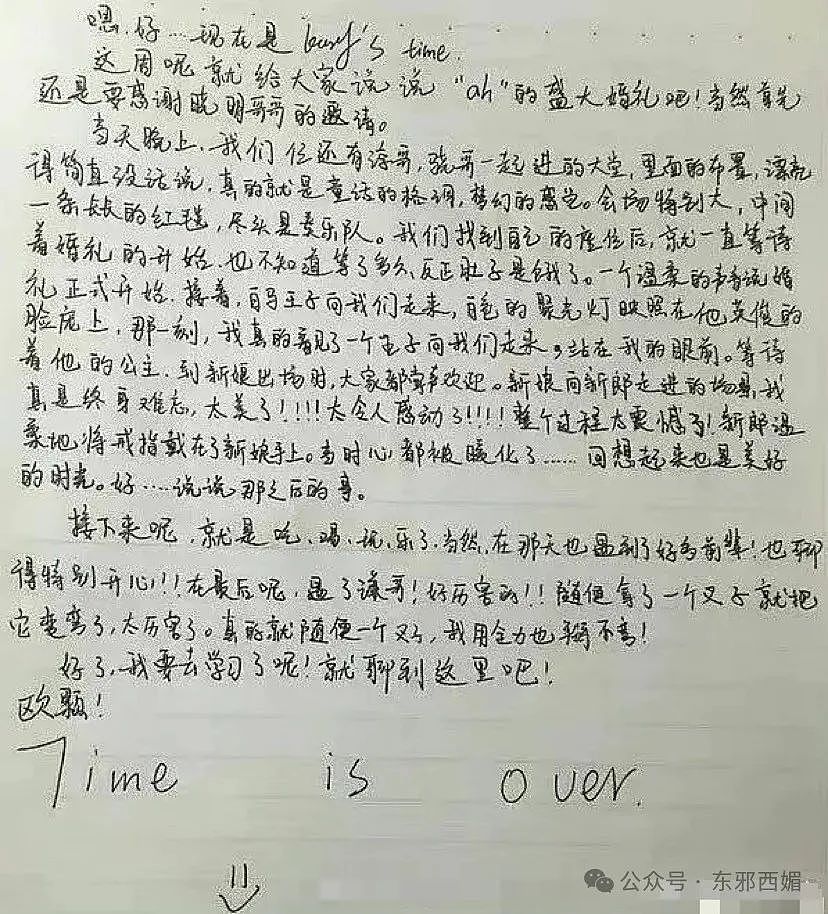 嗯,好…现在是 's time.
这周呢就给大家说说"ah"的盛大婚礼吧!当然首先
还是要感谢晓明哥哥的邀请。
当天晚上,我们仨还有涛哥,骁哥一起进的大堂,里面的布置,漂亮
得简直没话说,真的就是童话的格调,梦幻的感觉。会场特别大,中间
一条长长的红毯,尽头是奏乐队。我们找到自己的座位后,就一直等待
着婚礼的开始.也不知道等了多久,反正肚子是饿了。一个温柔的声音说婚
礼正式开始.接着,白马王子向我们走来,白色的聚光灯映照在他英俊的
脸庞上,那一刻,我真的看见了一个王子向我们走来,站在我的眼前。等待
着他的公主.到新娘出场时,大家都掌声欢迎。新娘向新郎走进的场景,我
真是终身难忘,太美了!!!!太令人感动了!!!!整个过程太震憾了!新郎温
柔地将戒指戴在了新娘手上。当时心都被暖化了……回想起来也是美好
的时光。好……说说那之后的事。
接下来呢,就是吃、喝、玩、乐了.当然,在那天也遇到了好多前辈!也聊
得特别开心!!!在最后呢,遇了 哥!好厉害的!!随便拿了一个叉子就把
它变弯了,太厉害了。真的就随便一个叉子,我用全力也掰不弯!
好了,我要去学习了呢!就聊到这里吧!
欧颗!
Time is over.
公众号·东邪西媚